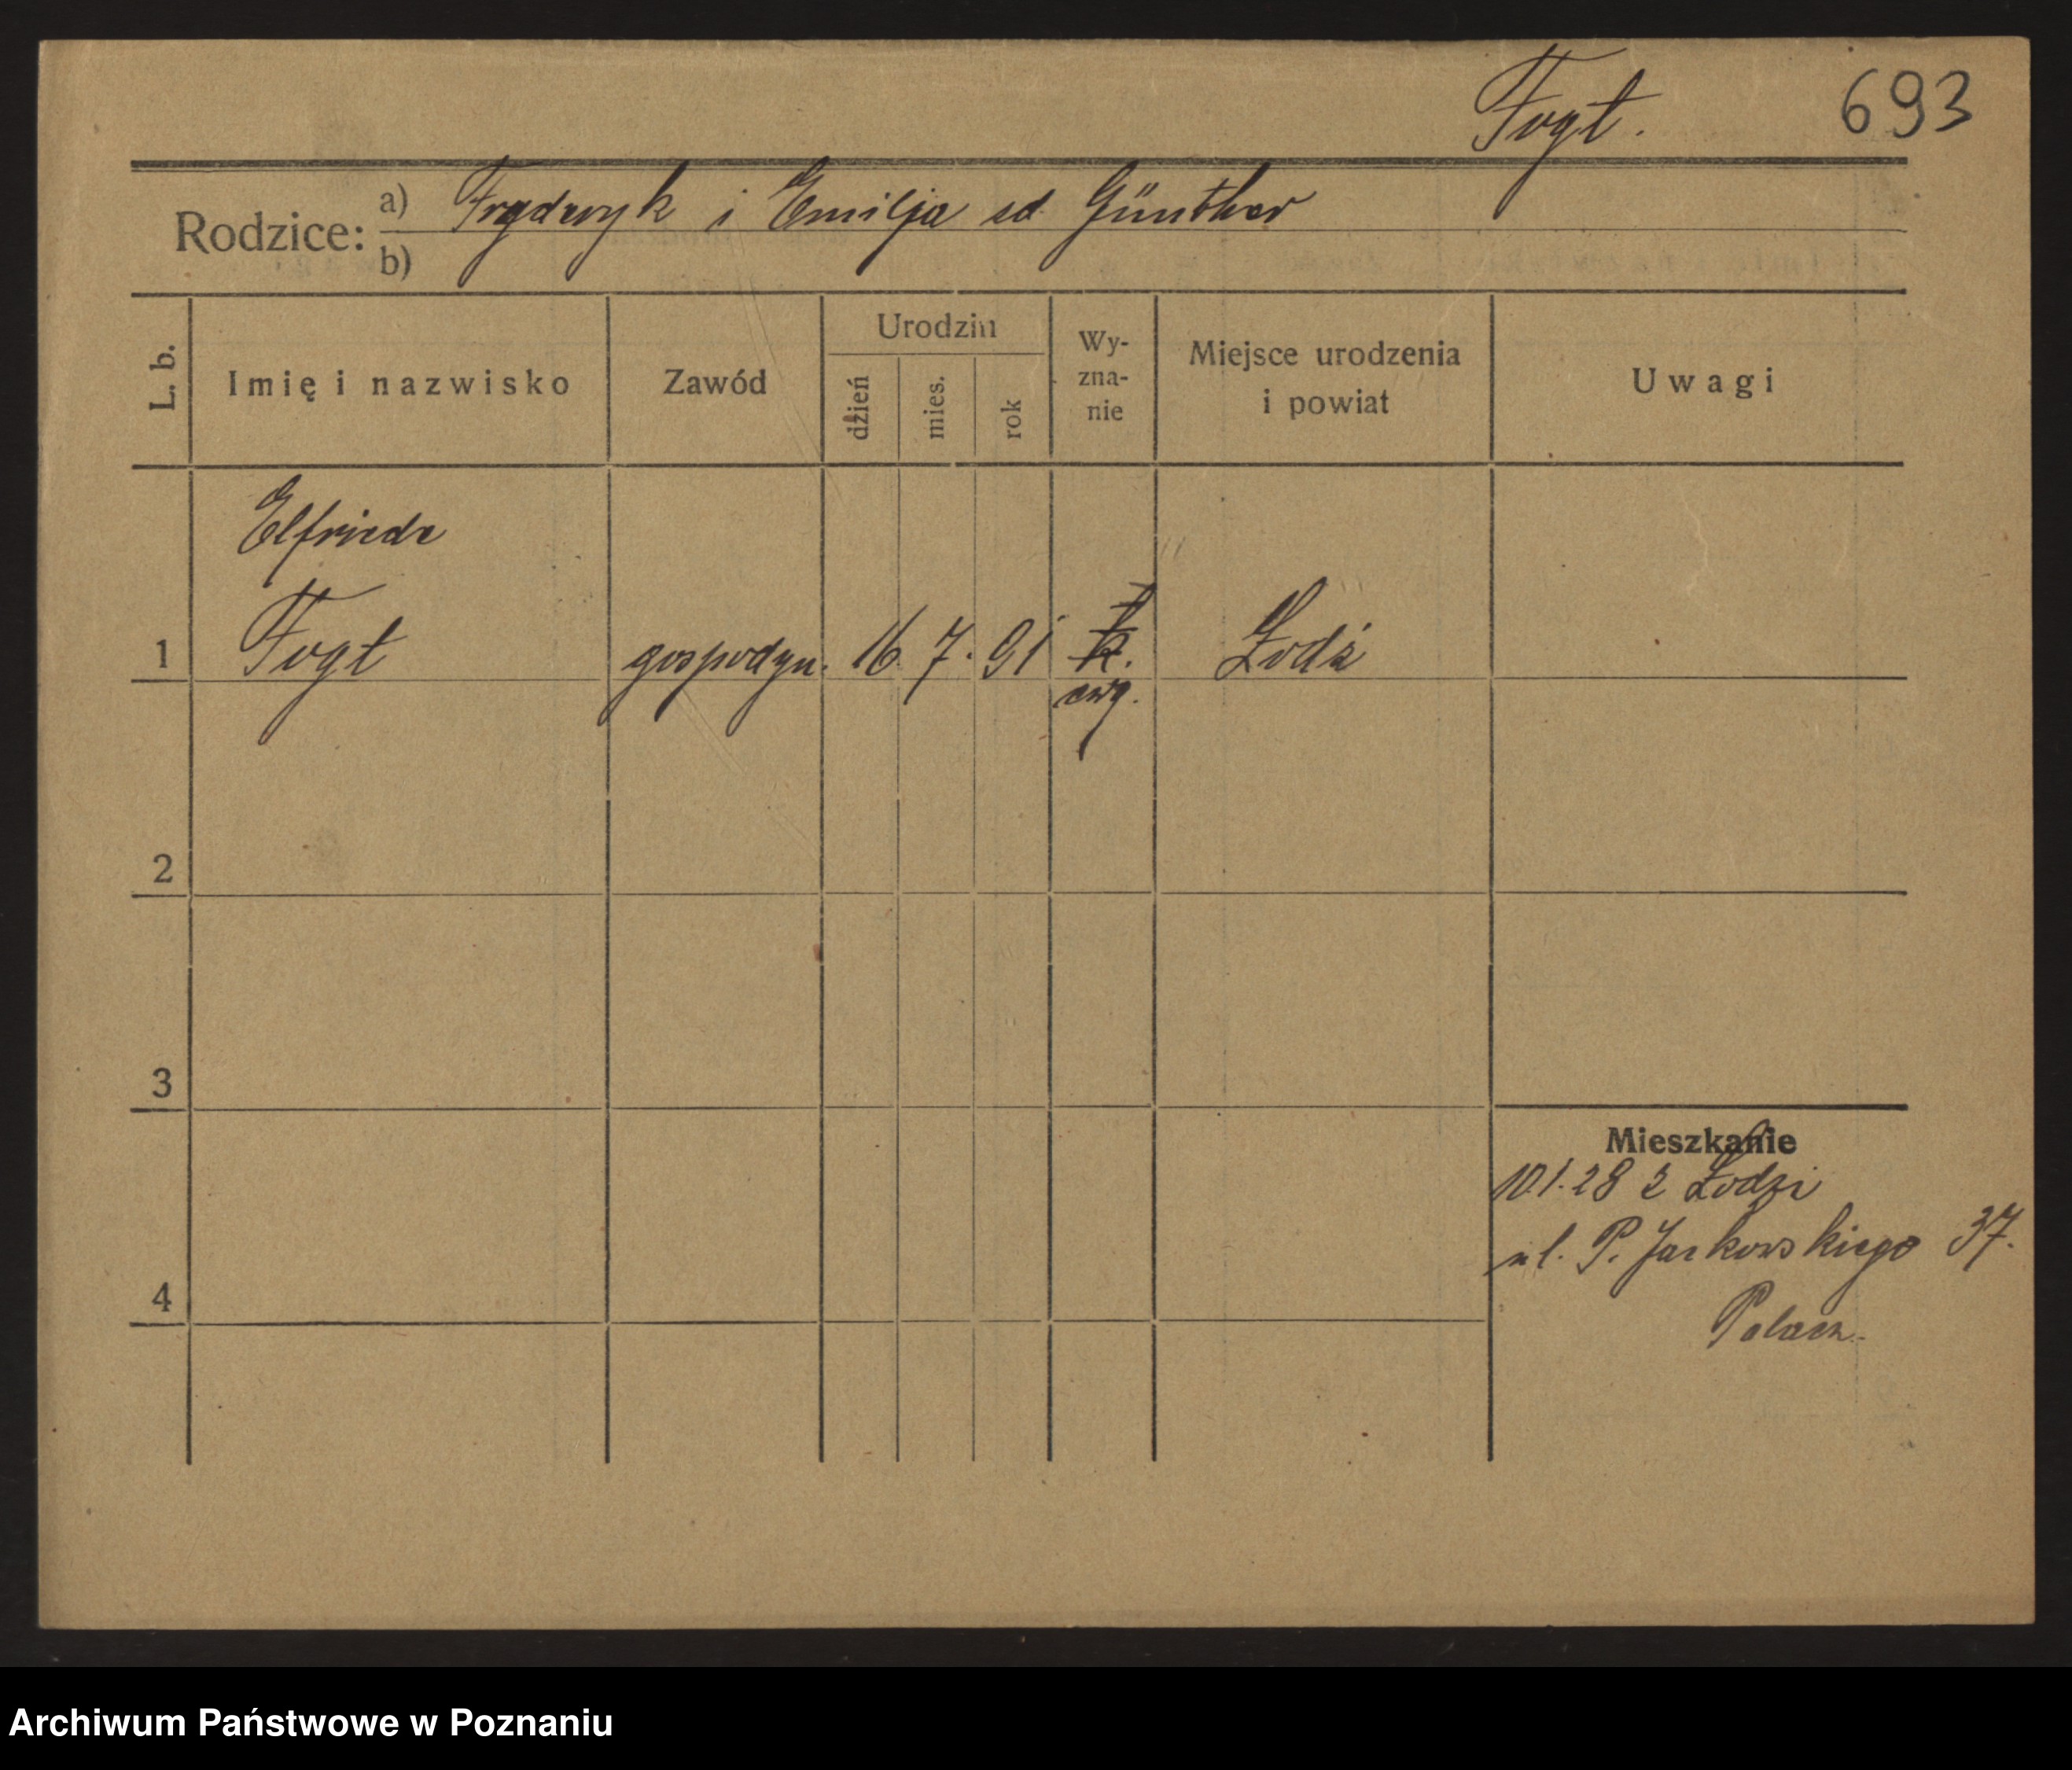 Fogt. 693
Rodzice: a) Fryderyk i Emilja sd. Günther
b)
L. b. Imię i nazwisko Zawód Urodzin dzień mies. rok Wy-zna-nie Miejsce urodzenia i powiat Uwagi
Elfriede
1 Fogt gospodyn. 16 7. 91 k. Łodź
ewg.
2
3
Mieszkanie
10.1.28 z Łodzi
ul. P. Jackowskiego 37.
4
Archiwum Państwowe w Poznaniu